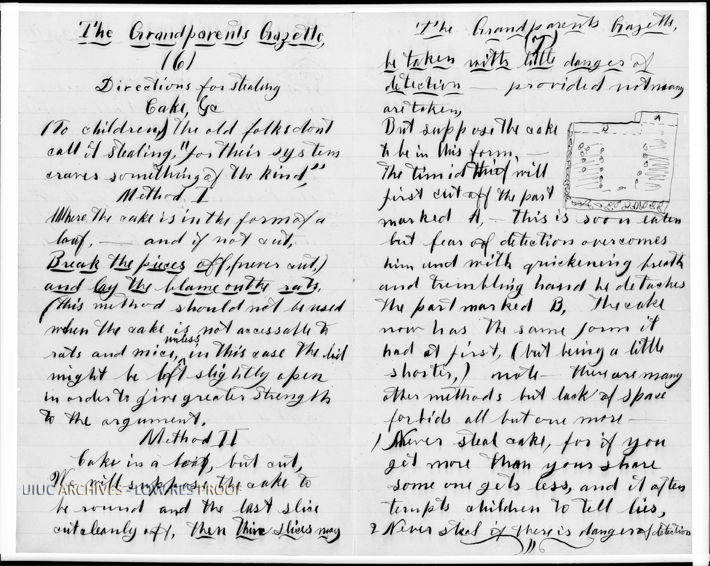 The Grandparents Gazette,
(6)
Directions for stealing
Cake, &c
(To children) the old folks dont
call it stealing, "for their system
craves something of the kind,"
Method I
Where the cake is in the form of a
loaf, — and if not cut,
Break the pieces off, (never cut,)
and lay the blame on the rats,
(this method should not be used
when the cake is not accessable to
rats and mice, unless, in this case the lid
might be left slightly open
in order to give greater strength
to the argument.
Method II
Cake in a loaf, but cut,
We will suppose the cake to
be round and the last slice
cut cleanly off, then thin slices may
UIUC ARCHIVES - LOW RES PROOF
The Grandparents Gazette,
(7)
be taken with little danger of
detection — provided not many
are taken,
But suppose the cake
to be in this form, —
The timid thief will
first cut off the part
marked A, — this is soon eaten
but fear of detection overcomes
him and with quickening breath
and trembling hand he detaches
the part marked B, The cake
now has the same form it
had at first, (but being a little
shorter,) note — there are many
other methods but lack of space
forbids all but one more —
1 Never steal cake, for if you
get more than your share
some one gets less, and it often
tempts children to tell lies,
2 Never steal if there is danger of detection
A
B